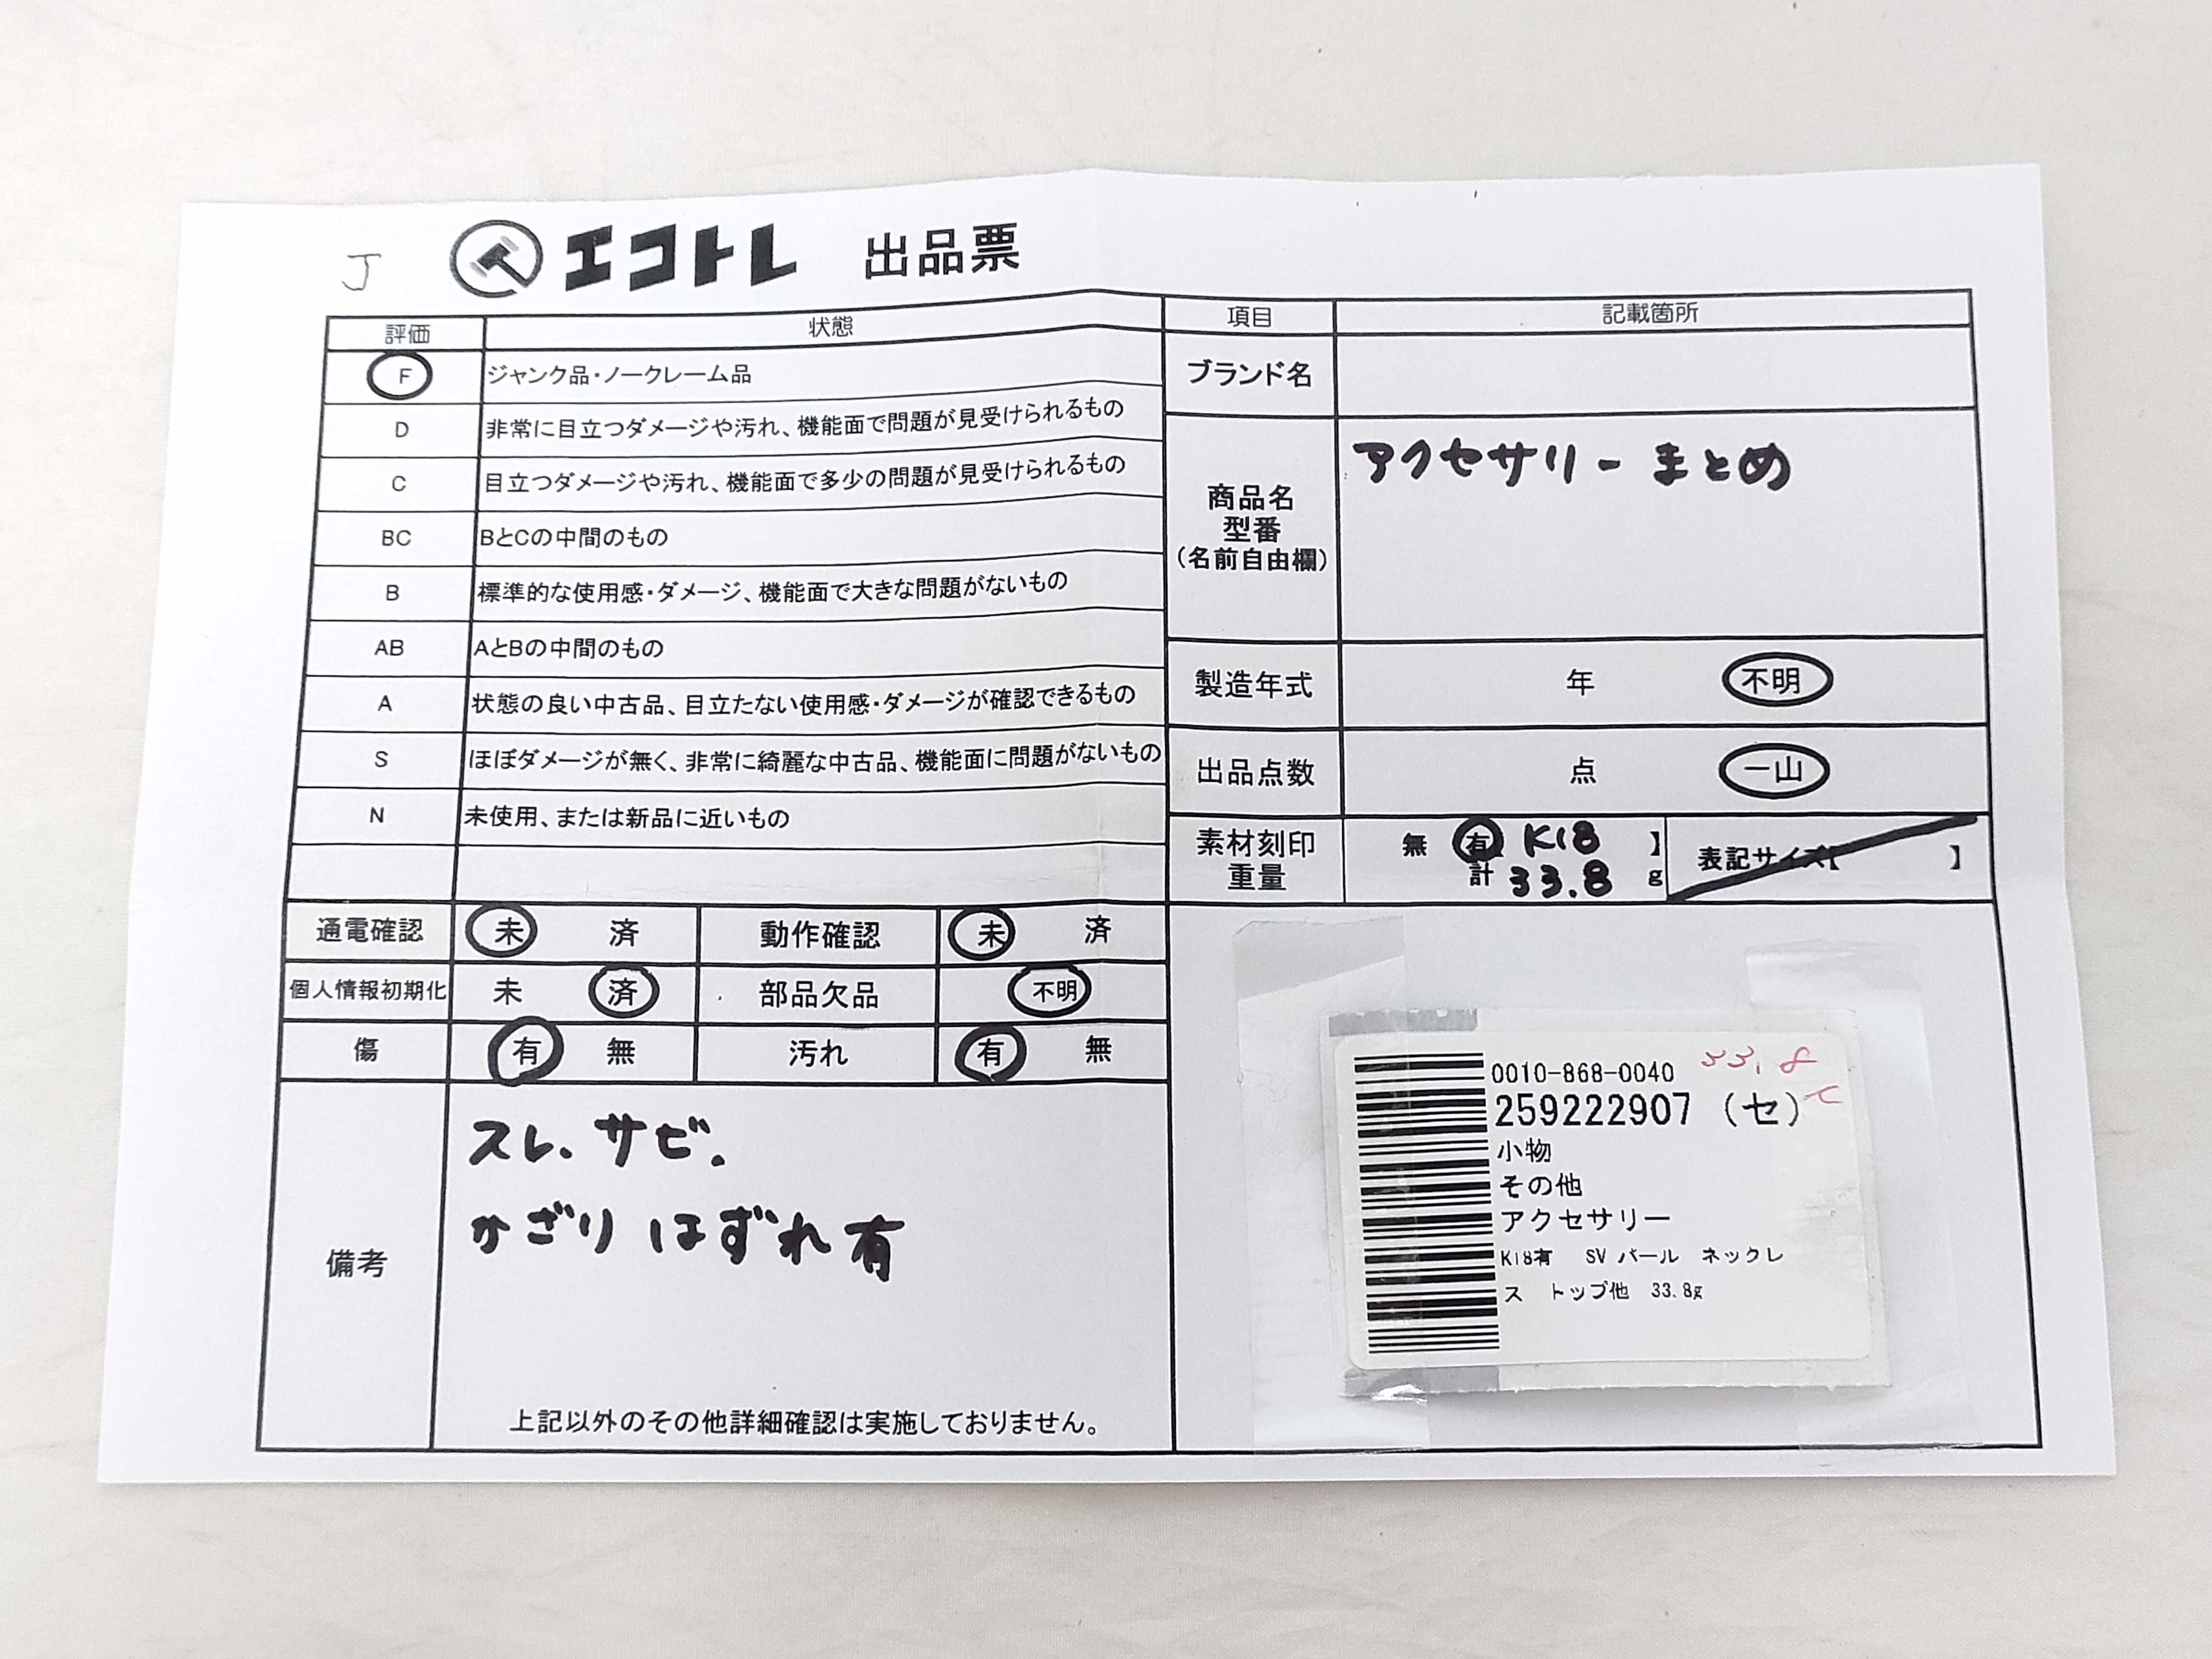 J エコトレ 出品票
評価 状態
F ジャンク品・ノークレーム品
D 非常に目立つダメージや汚れ、機能面で問題が見受けられるもの
C 目立つダメージや汚れ、機能面で多少の問題が見受けられるもの
BC BとCの中間のもの
B 標準的な使用感・ダメージ、機能面で大きな問題がないもの
AB AとBの中間のもの
A 状態の良い中古品、目立たない使用感・ダメージが確認できるもの
S ほぼダメージが無く、非常に綺麗な中古品、機能面に問題がないもの
N 未使用、または新品に近いもの
通電確認 未 済 動作確認 未 済
個人情報初期化 未 済 部品欠品 不明
傷 有 無 汚れ 有 無
備考
スレ、サビ.
かざりはずれ有
上記以外のその他詳細確認は実施しておりません。
項目 記載箇所
ブランド名
商品名
型番
(名前自由欄)
アクセサリーまとめ
製造年式 年 不明
出品点数 点 一山
素材刻印
重量
無 有 K18 】
計 33.8 g
表記サイズ【 】
0010-868-0040 33.8
259222907 (セ)
小物
その他
アクセサリー
K18有 SV パール ネックレ
ス トップ他 33.8g